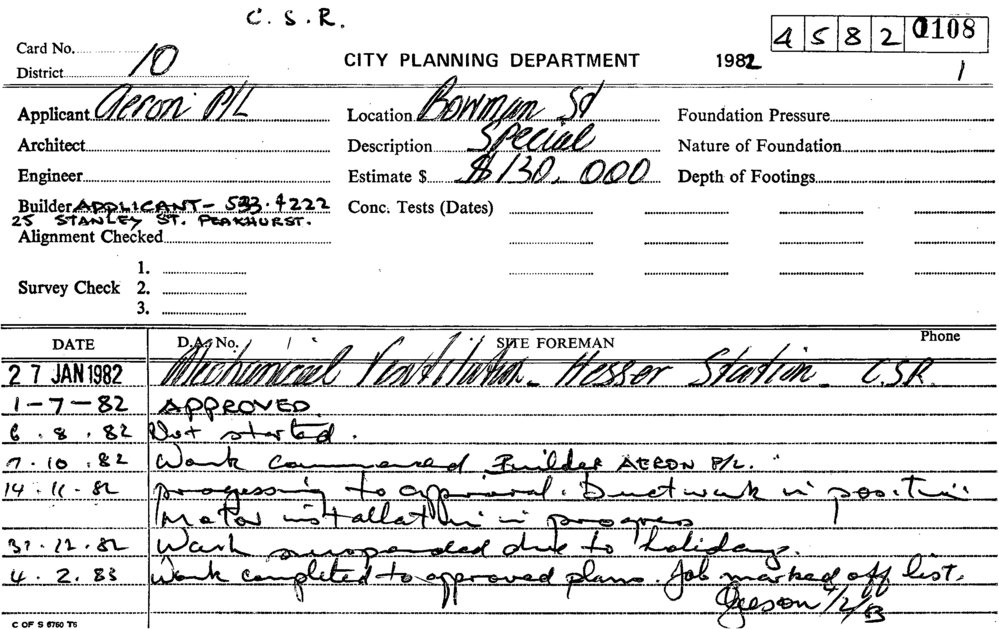 C.S.R.
4582 0108
Card No.
District 10
CITY PLANNING DEPARTMENT
1982
1
Applicant Aeron P/L
Location Bowman St
Foundation Pressure
Architect
Description Special
Nature of Foundation
Engineer
Estimate $ $130,000
Depth of Footings
Builder APPLICANT - 533.4222
25 STANLEY ST. PEAKHURST.
Conc. Tests (Dates)
Alignment Checked
Survey Check 1.
2.
3.
DATE D.A. No. SITE FOREMAN Phone
27 JAN 1982 Mechanical Ventilation - Hesser Station - C.S.R.
1-7-82 APPROVED.
6.8.82 Not started.
7.10.82 Work commenced Builder AERON P/L.
14.11.82 progressing to approval. Ductwork in position
Motor installation in progress
31.12.82 Work suspended due to holidays.
4.2.83 Work completed to approved plans. Job marked off list.
4/2/83
C OF S 6760 T5